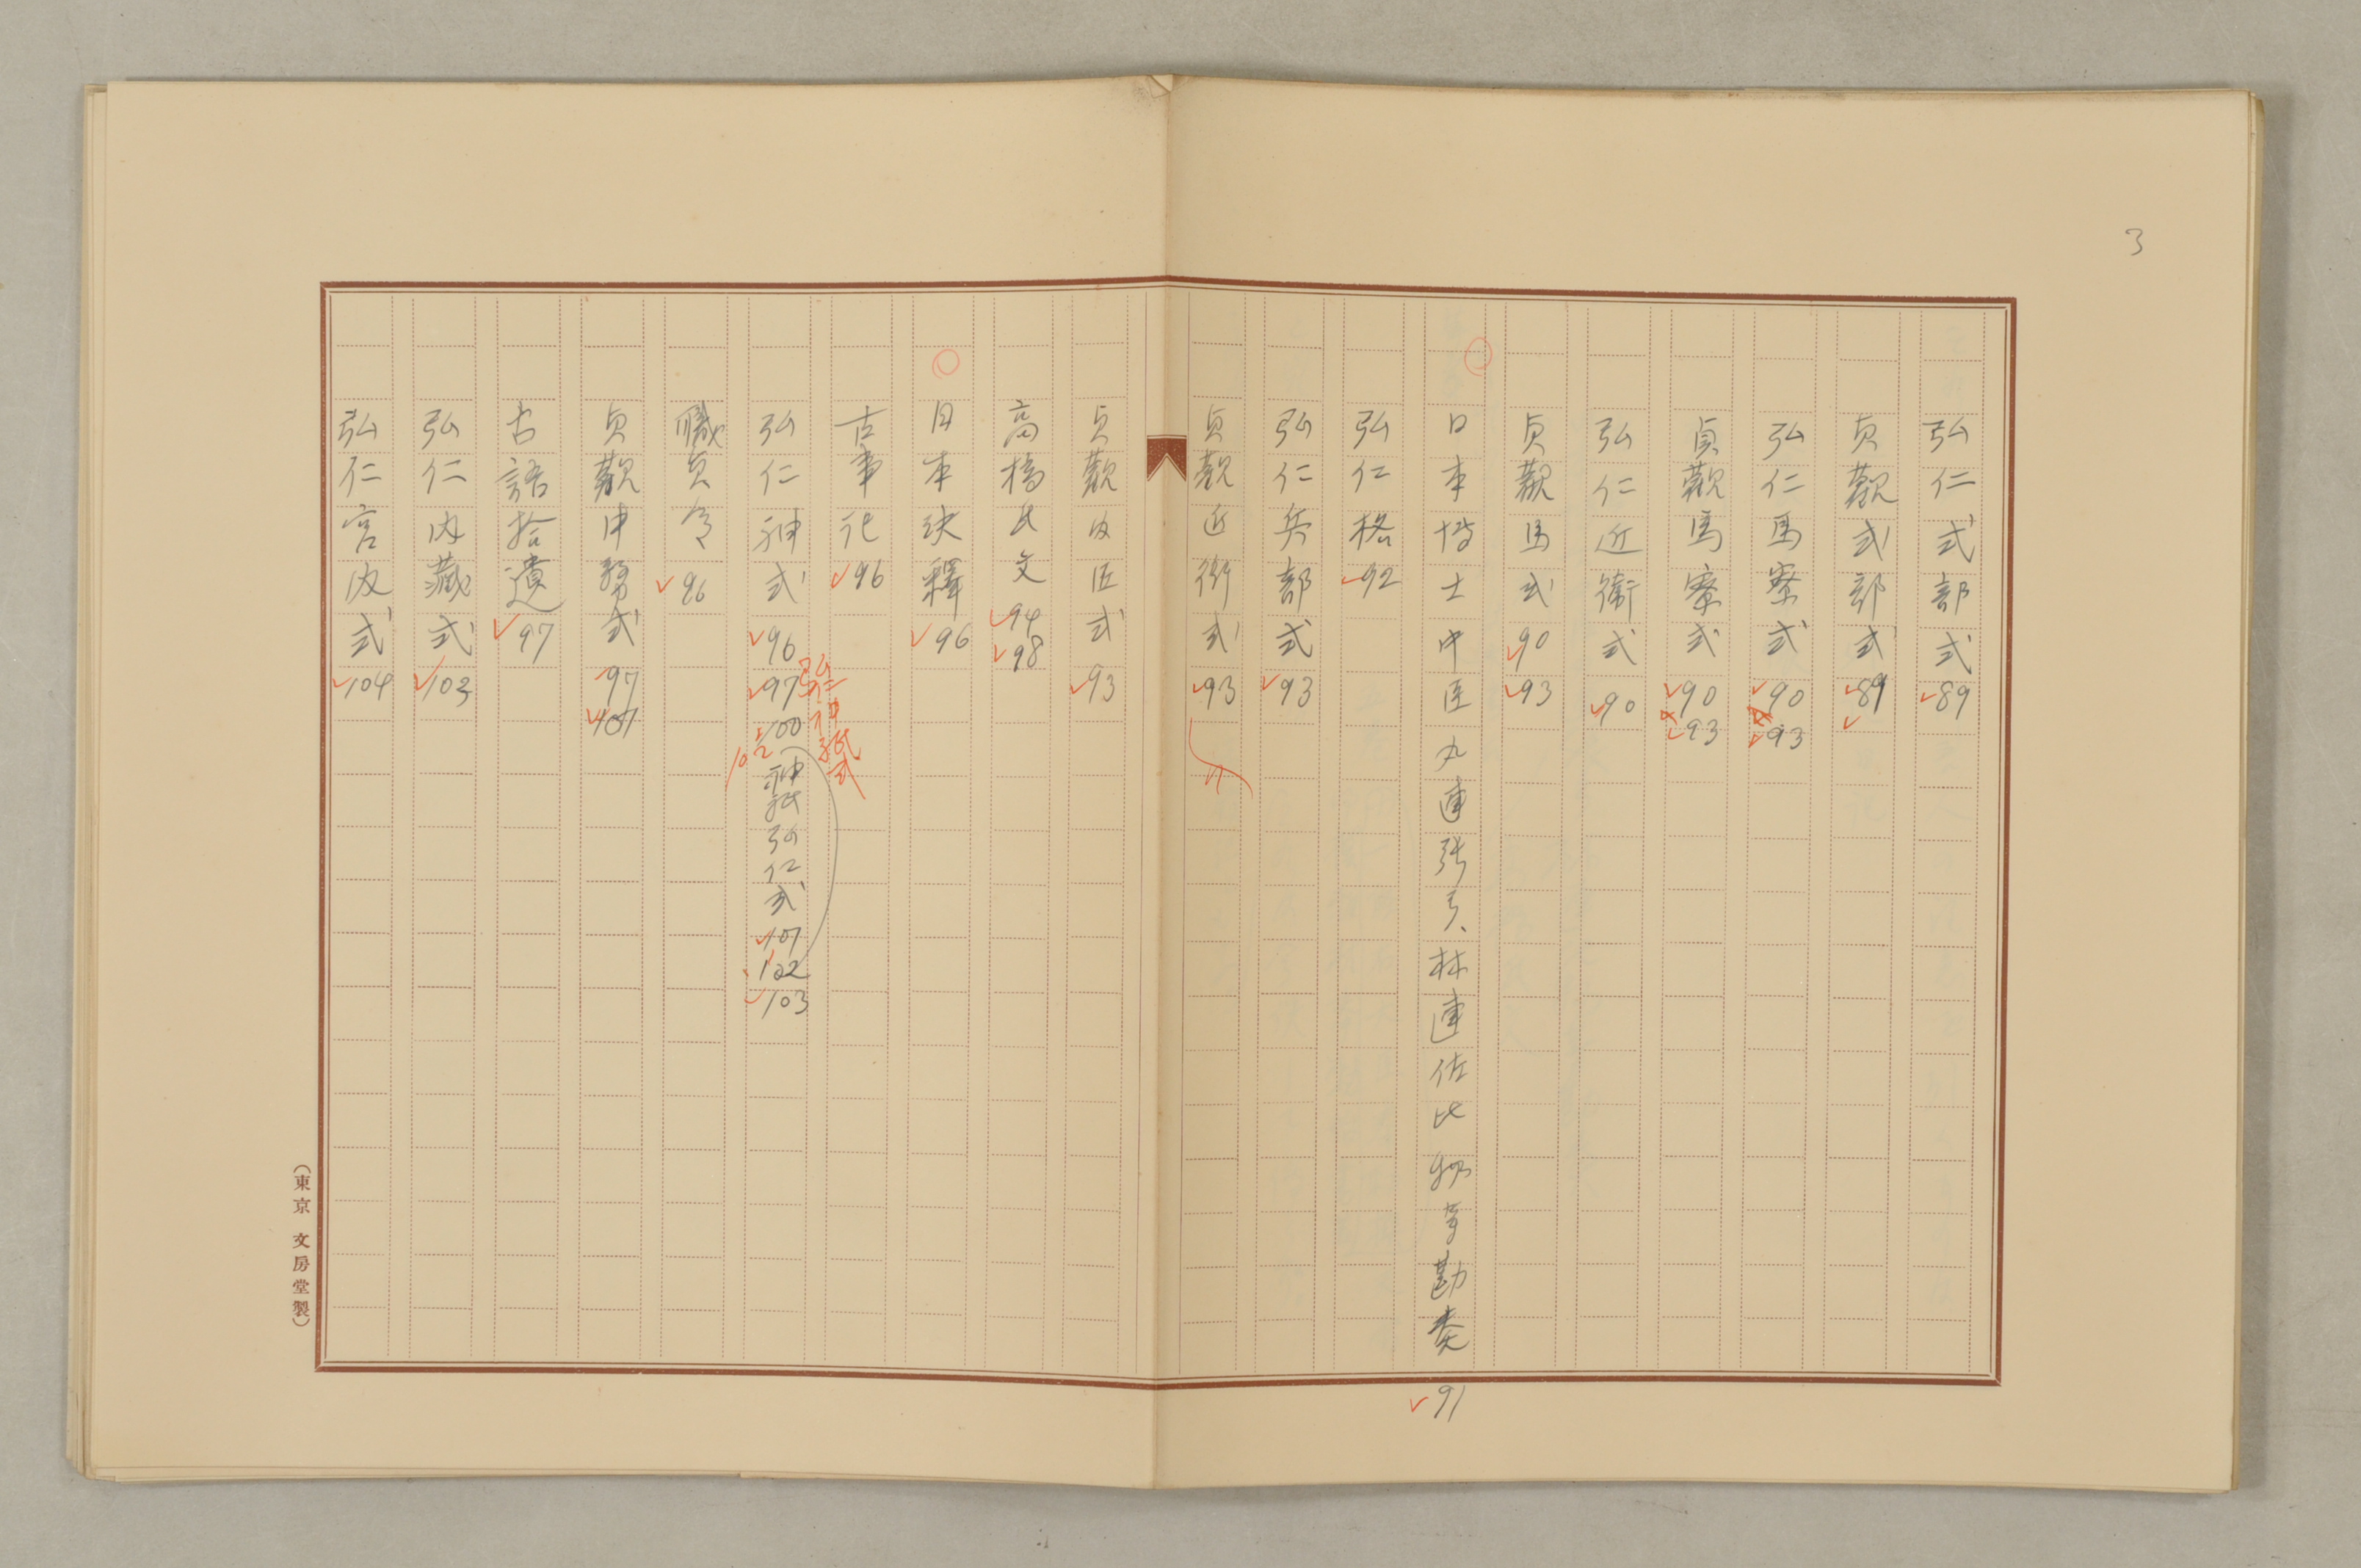 3
弘仁式部式 89
貞觀式部式 89
弘仁馬寮式 90 93
貞觀馬寮式 90 93
弘仁近衛式 90
貞觀馬式 90 93
日本博士中臣丸連張弓、林連佐比物等勘奏 91
弘仁格 92
弘仁兵部式 93
貞觀近衛式 93
貞觀内匠式 93
高橋氏文 94 98
日本決釋 96
古事記 96
弘仁神祇式
弘仁神式 96 97 100 102 神祇弘仁式 101 102 103
職員令 96
貞觀中務式 97 107
古語拾遺 97
弘仁内藏式 103
弘仁宮内式 104
(東京 文房堂製)